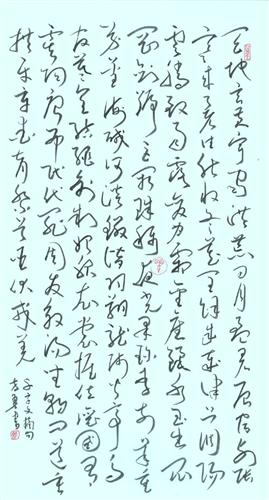 天地玄黄宇宙洪荒日月盈昃辰宿列张
寒来暑往秋收冬藏闰余成岁律吕调阳
云腾致雨露结为霜金生丽水玉出昆
冈剑号巨阙珠称夜光果珍李柰菜重
芥姜海咸河淡鳞潜羽翔龙师火帝鸟
官人皇始制文字乃服衣裳推位让国有
虞陶唐吊民伐罪周发殷汤坐朝问道垂
拱平章爱育黎首臣伏戎羌
千字文摘句
书